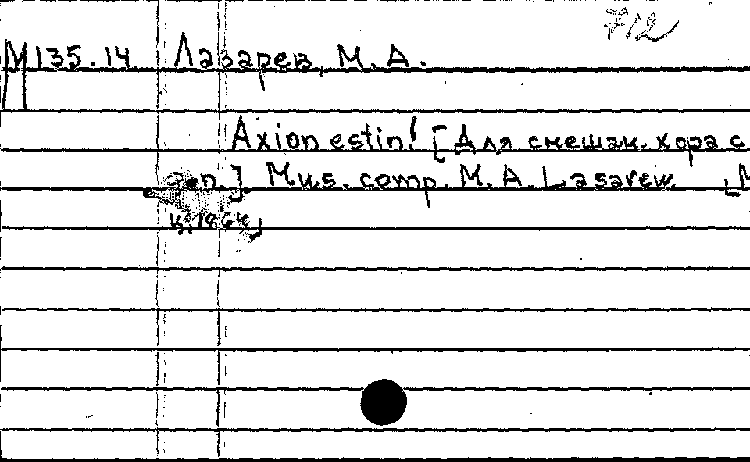 712
М135.14 Лазарев, М. А.
Axion estin! [Для смешан. хора с
ф-п.]. Mus. comp. M. A. Lasarew. [М